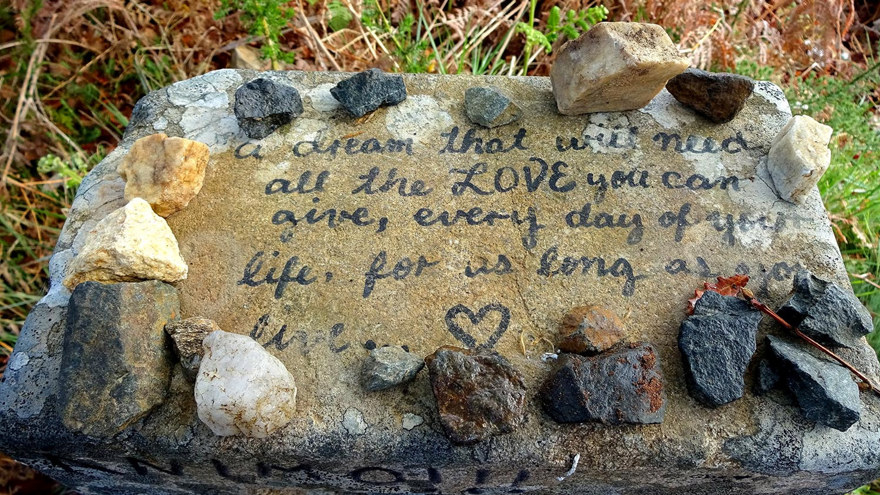 a dream that will need
all the LOVE you can
give, every day of your
life, for as long as you
live....